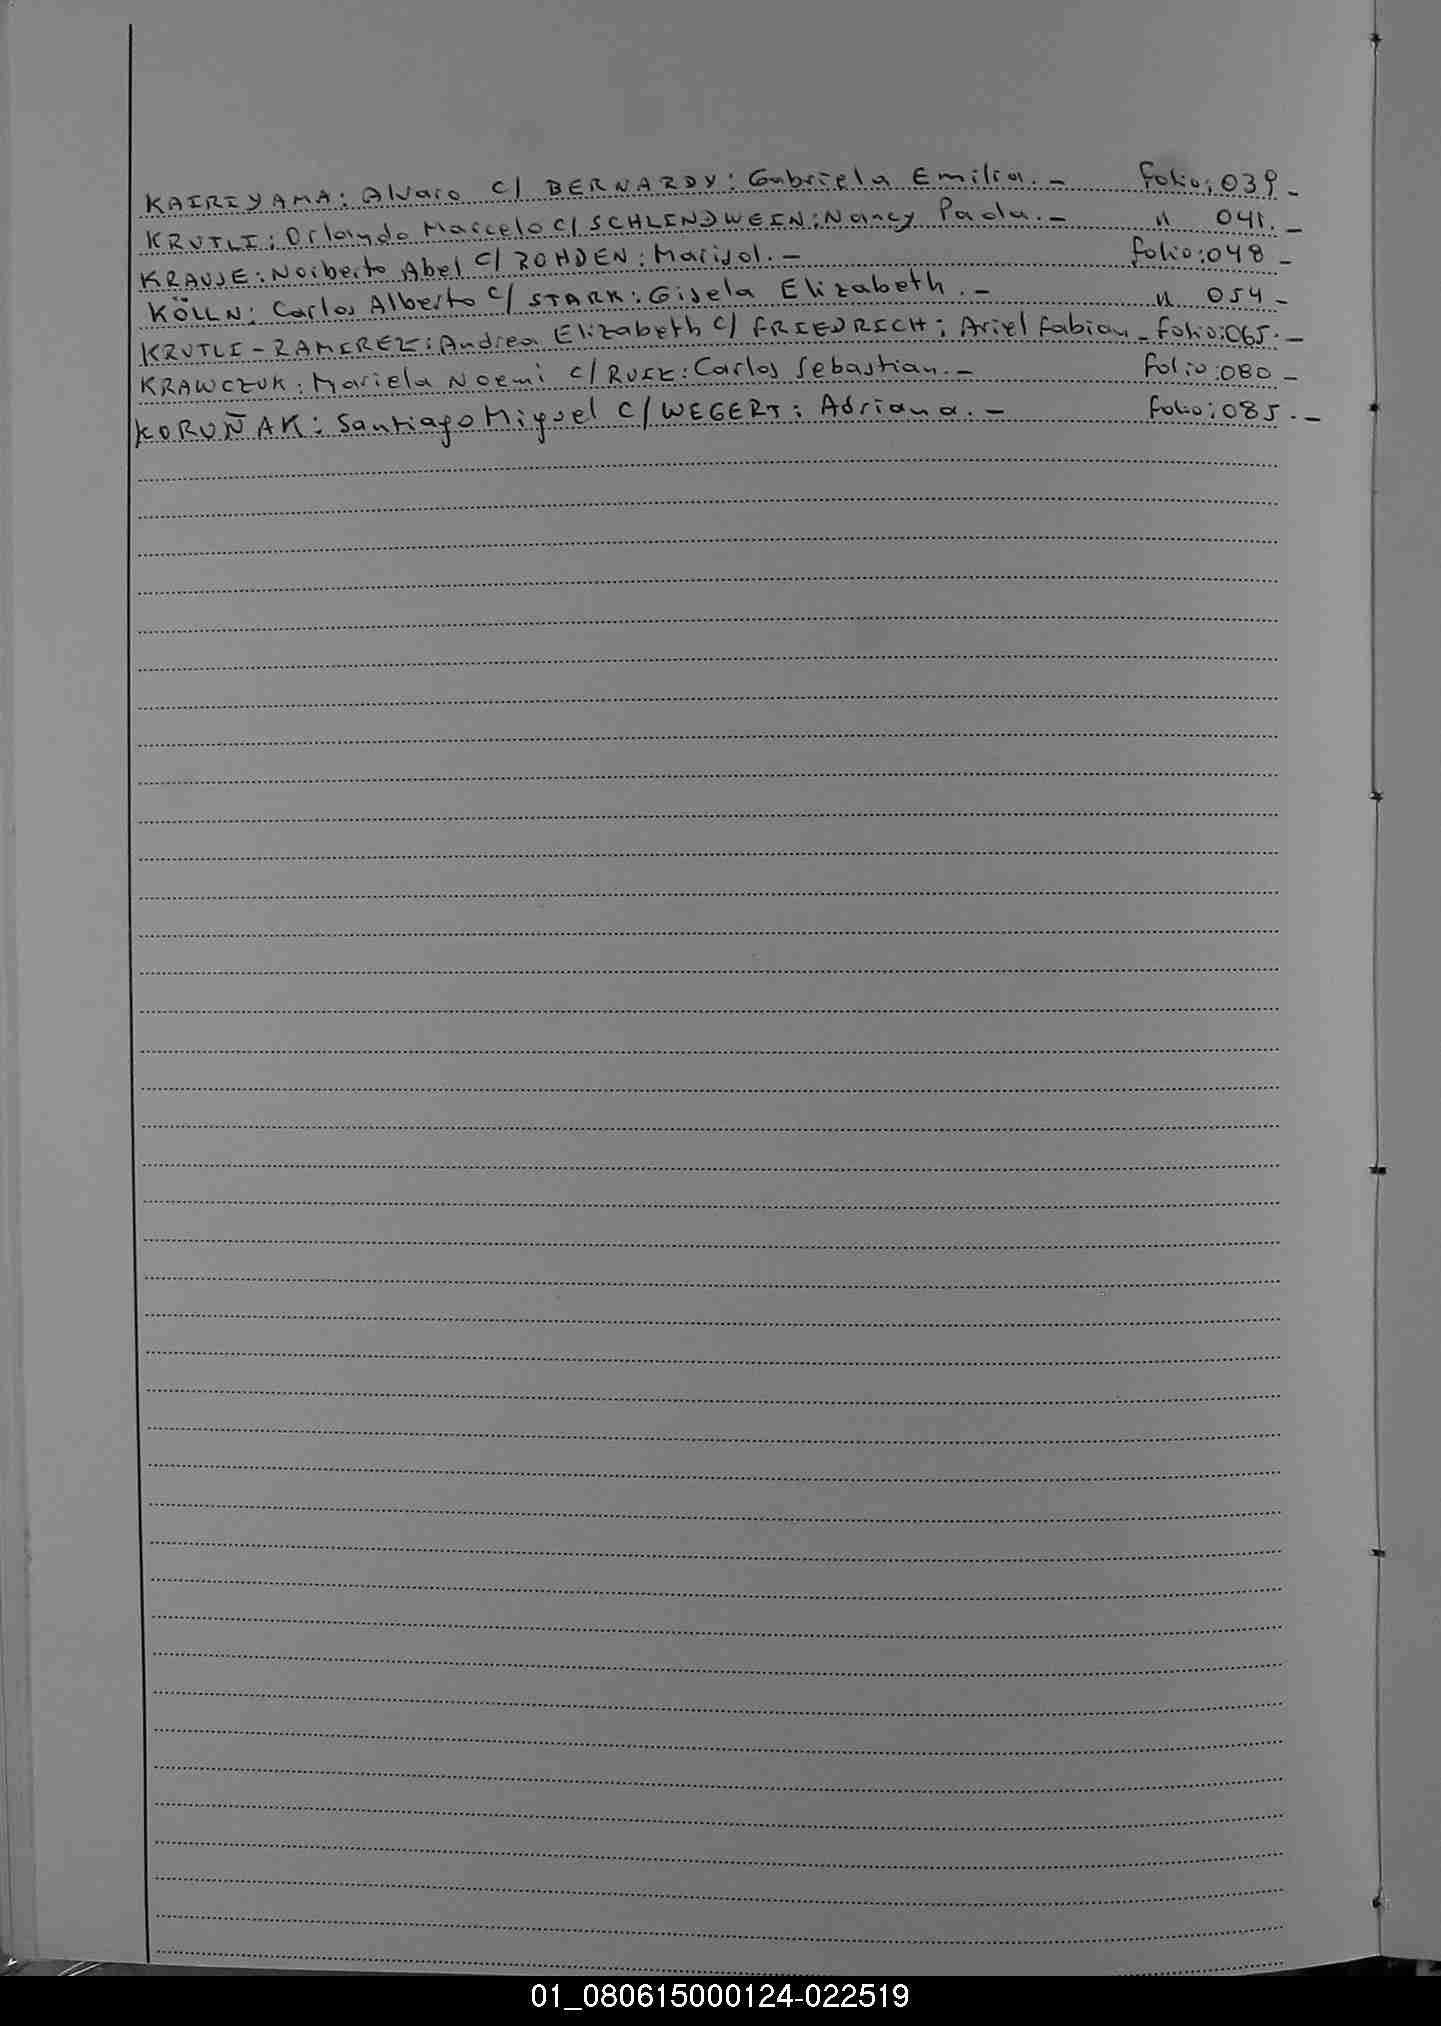 KAIRIYAMA: Alvaro C/ BERNARDY: Gabriela Emilia.- folio:039-
KRUTLI: Orlando Marcelo C/ SCHLINDWEIN: Nancy Paola.- " 041.-
KRAUSE: Norberto Abel C/ ROHDEN: Marisol.- folio:048-
KÖLLN: Carlos Alberto C/ STARK: Gisela Elizabeth.- " 054-
KRUTLI-RAMIREZ: Andrea Elizabeth C/ FRIEDRICH: Ariel Fabian-folio:065.-
KRAWCZUK: Mariela Noemi C/ RUIZ: Carlos Sebastian.- folio:080-
KORUÑAK: Santiago Miguel C/ WEGERT: Adriana.- folio:085.-
01_080615000124-022519